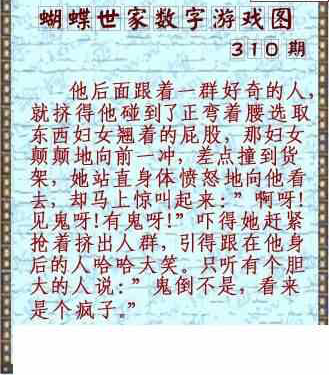 蝴蝶世家数字游戏图
310期
他后面跟着一群好奇的人,
就挤得他碰到了正弯着腰选取
东西妇女翘着的屁股，那妇女
颠颠地向前一冲，差点撞到货
架，她站直身体愤怒地向他看
去，却马上惊叫起来：”啊呀!
见鬼呀!有鬼呀!”吓得她赶紧
抢着挤出人群，引得跟在他身
后的人哈哈大笑。只听有个胆
大的人说：”鬼倒不是，看来
是个疯子。”